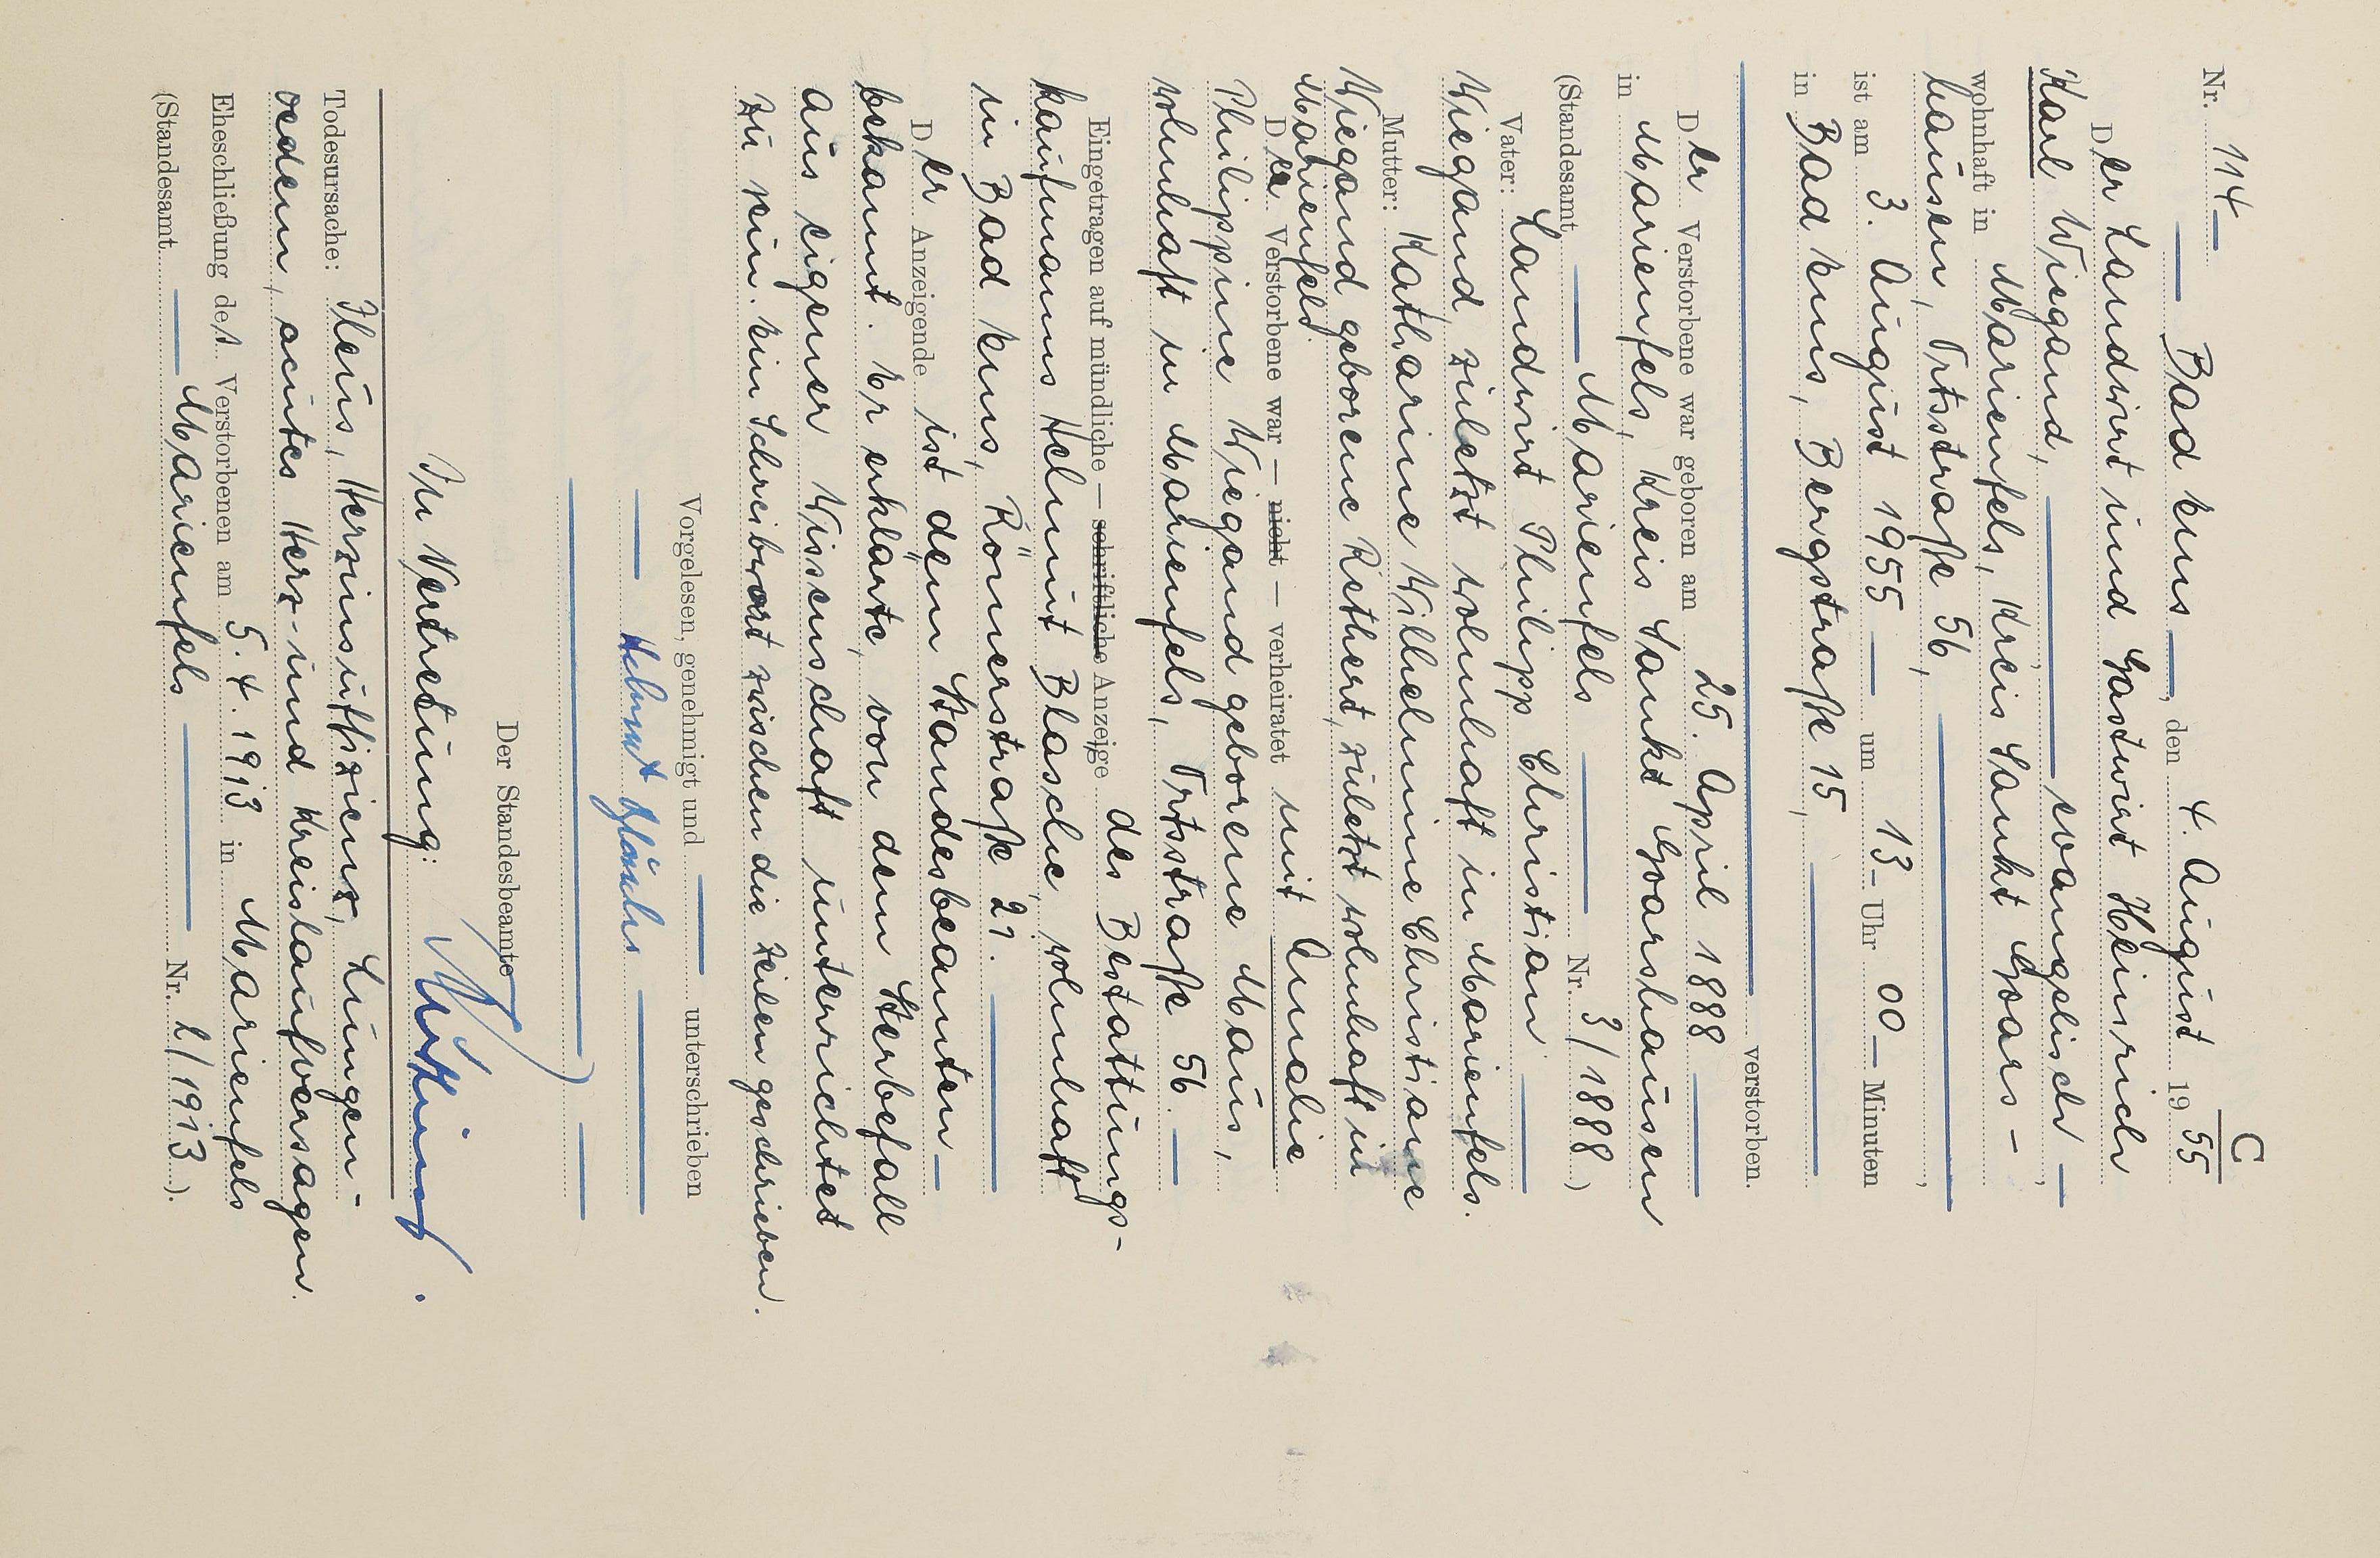 C
Nr. 114
Bad Ems, den 4. August 1955
Der Landwirt und Gastwirt Heinrich
Karl Wiegand, evangelisch
wohnhaft in Marienfels, Kreis Sankt Goars-
hausen, Ortsstraße 56,
ist am 3. August 1955 um 13 Uhr 00 Minuten
in Bad Ems, Bergstraße 15,
verstorben.
Der Verstorbene war geboren am 25. April 1888
in Marienfels, Kreis Sankt Goarshausen
(Standesamt Marienfels Nr. 3/1888)
Vater: Landwirt Philipp Christian
Wiegand, zuletzt wohnhaft in Marienfels.
Mutter: Katharine Wilhelmine Christiane
Wiegand geborene Rethert, zuletzt wohnhaft in
Marienfels.
Der Verstorbene war — nicht — verheiratet mit Amalie
Philippine Wiegand geborene Maus,
wohnhaft in Marienfels, Ortsstraße 56.
Eingetragen auf mündliche — schriftliche Anzeige des Bestattungs-
kaufmanns Helmut Blasche, wohnhaft
in Bad Ems, Römerstraße 21.
Der Anzeigende ist dem Standesbeamten
bekannt. Er erklärte, von dem Sterbefall
aus eigener Wissenschaft unterrichtet
zu sein. Ein Schreibwort zwischen die Zeilen geschrieben.
Vorgelesen, genehmigt und unterschrieben
Helmut Bläsche
Der Standesbeamte
In Vertretung:
Todesursache: Ileus, Herzinsuffizienz, Lungen-
oedem, acutes Herz- und Kreislaufversagen.
Eheschließung des Verstorbenen am 5. 4. 1913 in Marienfels
(Standesamt Marienfels Nr. 2/1913).